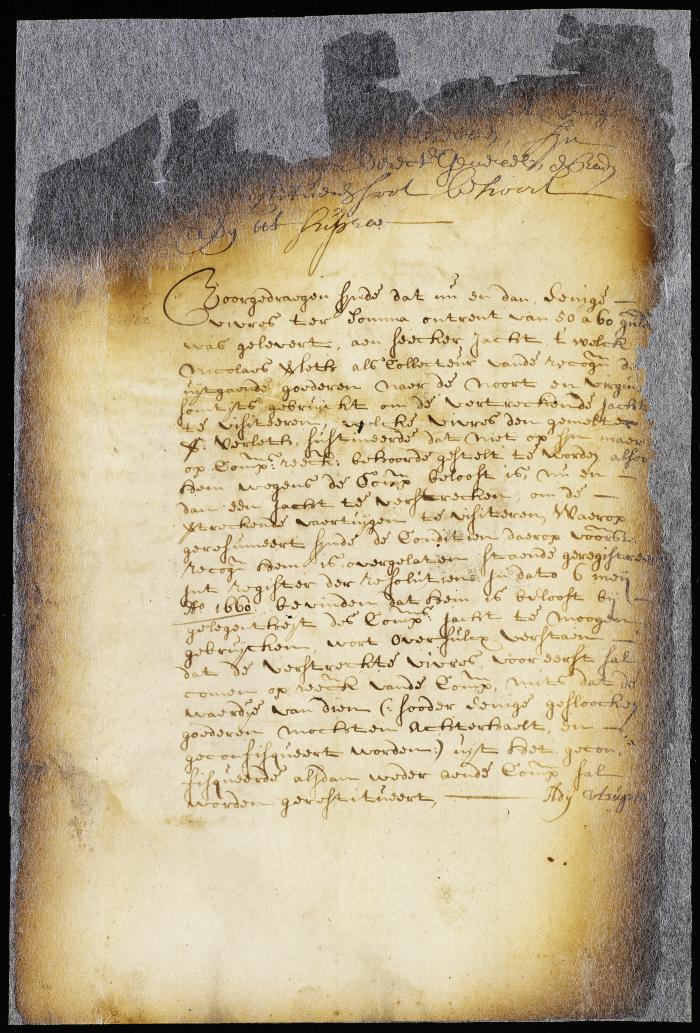 Directr Generael, & Raden
behoort
Ady ut supra
Voorgedraegen synde dat nu en dan, eenige
vivres ter somma ontrent van 50 a 60 guld
was gelevert, aen seecker Jacht t welck
Nicolaes Verleth als Collecteur vande recogn de
uytgaende goederen naer de Noort en Virgin
somtyts gebruyckt om de vertreckende Jachts
te visiteeren, welcke vivres den gemelten
N: Verleth, sustineerde dat niet op syn maer
op Comps: reeck: behoorde gestelt te worden alsoo
hem wegens de Comp belooft is, nu en
dan een Jacht te verstrecken, om de
vertreckende vaertuygen te visiteren, Waerop
geresumeert synde de Conditien daerop voors
recogn hem is overgelaten staende geregistreert
int register der resolutien in dato 6 mey
Ao 1660: bevinden dat hem is belooft by
gelegentheyt des Comps: Jacht te moogen
gebruycken, wort oversulcx verstaen
dat de verstreckte vivres, voor eerst sal
comen op reeck vande Comp, mits dat de
waerdye van dien (: sooder eenige gesloocken
goederen mochten Achterhaelt, en
geconfisqueert worden:) uyt het gecon-
fisqueerde alsdan weder aende Comp sal
worden gerestitueert, Ady ut supra